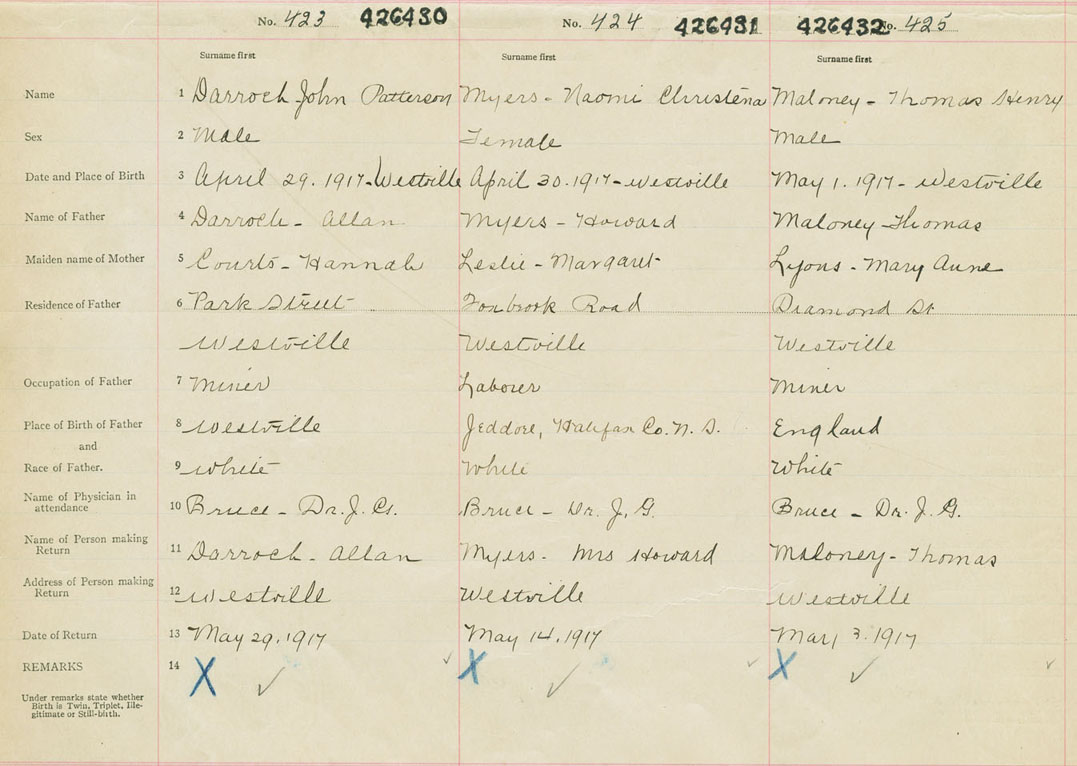 No. 423 426430 No. 424 426431 426432 No. 425
Surname first Surname first Surname first
Name 1 Darroch John Patterson Myers - Naomi Christena Maloney - Thomas Henry
Sex 2 Male Female Male
Date and Place of Birth 3 April 29. 1917 - Westville April 30. 1917 - Westville May 1. 1917 - Westville
Name of Father 4 Darroch - Allan Myers - Howard Maloney - Thomas
Maiden name of Mother 5 Courts - Hannah Leslie - Margaret Lyons - Mary Anne
Residence of Father 6 Park Street Foxbrook Road Diamond St
Westville Westville Westville
Occupation of Father 7 Miner Laborer Miner
Place of Birth of Father 8 Westville Jeddore, Halifax Co. N. S. England
and
Race of Father. 9 White White White
Name of Physician in
attendance 10 Bruce - Dr. J. G. Bruce - Dr. J. G. Bruce - Dr. J. G.
Name of Person making
Return 11 Darroch - Allan Myers - Mrs Howard Maloney - Thomas
Address of Person making
Return 12 Westville Westville Westville
Date of Return 13 May 29. 1917 May 14. 1917 May 3. 1917
REMARKS 14 X ✓ ✓ X ✓ ✓ X ✓ ✓
Under remarks state whether
Birth is Twin, Triplet, Ille-
gitimate or Still-birth.